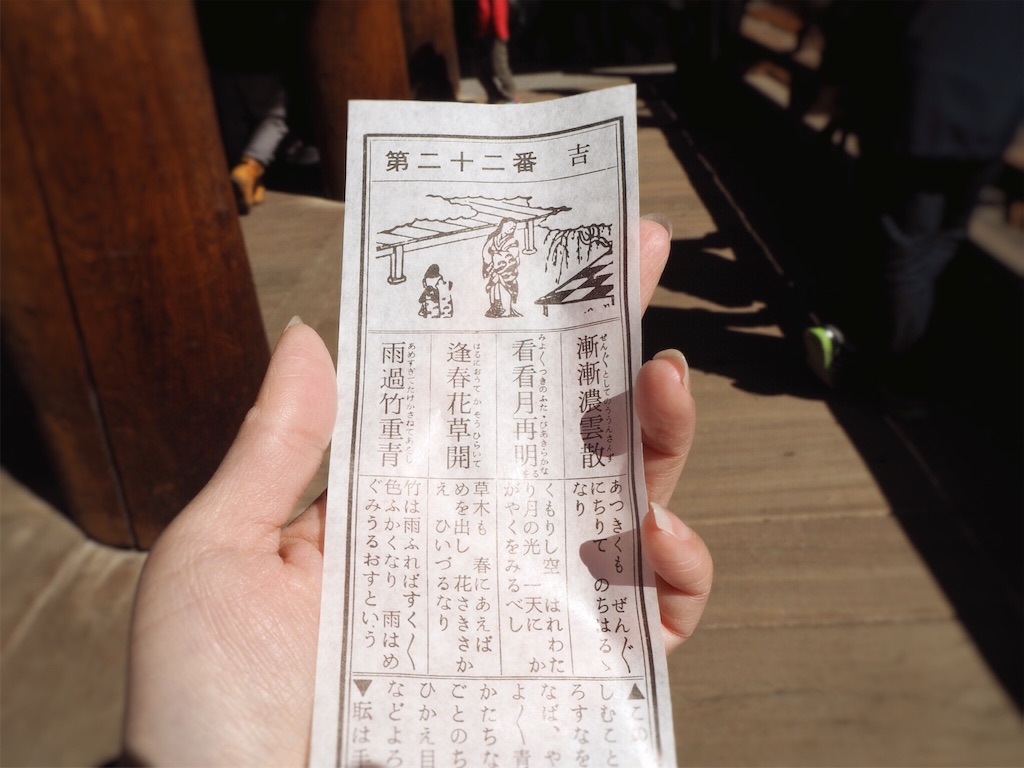 第二十二番 吉
漸漸濃雲散
看看月再明
逢春花草開
雨過竹重青
あつきくも ぜんぐ
にちりて のちはるゝ
なり
くもりし空 はれわた
り月の光 一天に か
がやくをみるべし
草木も 春にあえば
めを出し 花さきさか
え ひいづるなり
竹は雨ふればすく〱
色ふかくなり 雨はめ
ぐみうるおすという
▲この
しむこと
ろすなを
なば、や
よく〱青
かたちな
ごとのち
ひかえ目
などよろ